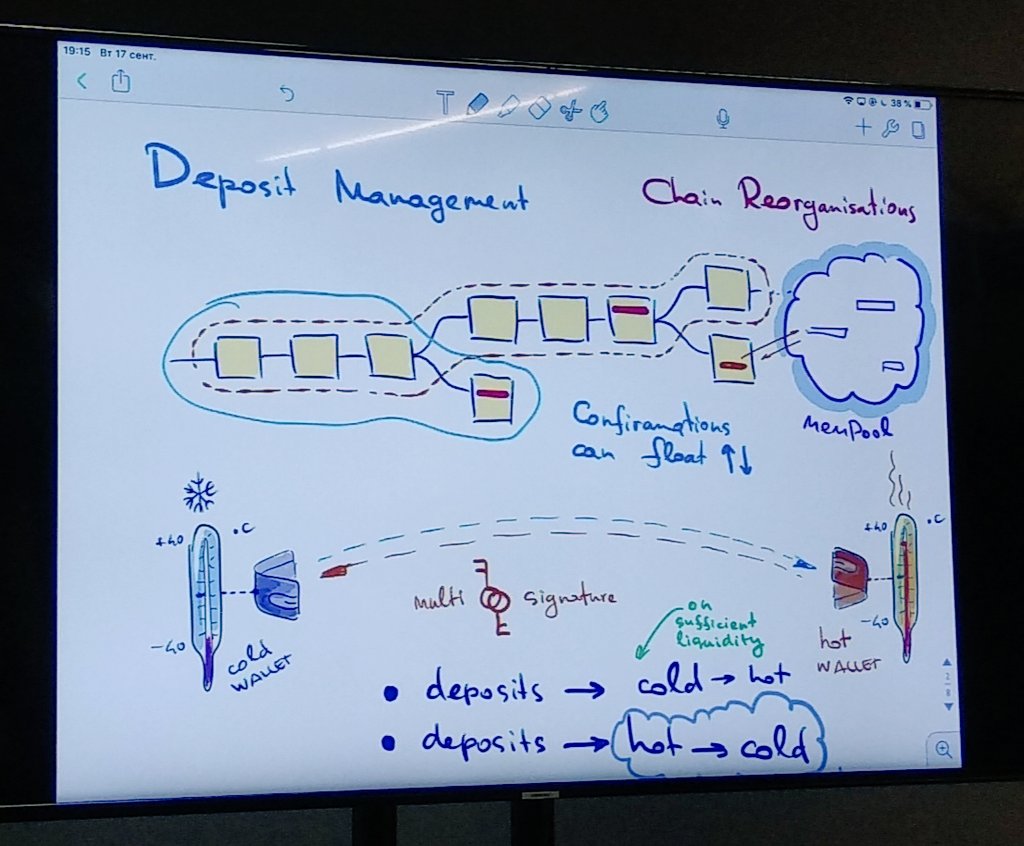 19:15 Вт 17 сент.
38 %
T
Deposit Management
Chain Reorganisations
Confiramations
can float ↑↓
MemPool
+40
°C
-40
cold
WALLET
multi signature
on
sufficient
liquidity
+40
°C
-40
hot
WALLET
• deposits → cold → hot
• deposits → hot → cold
2
8